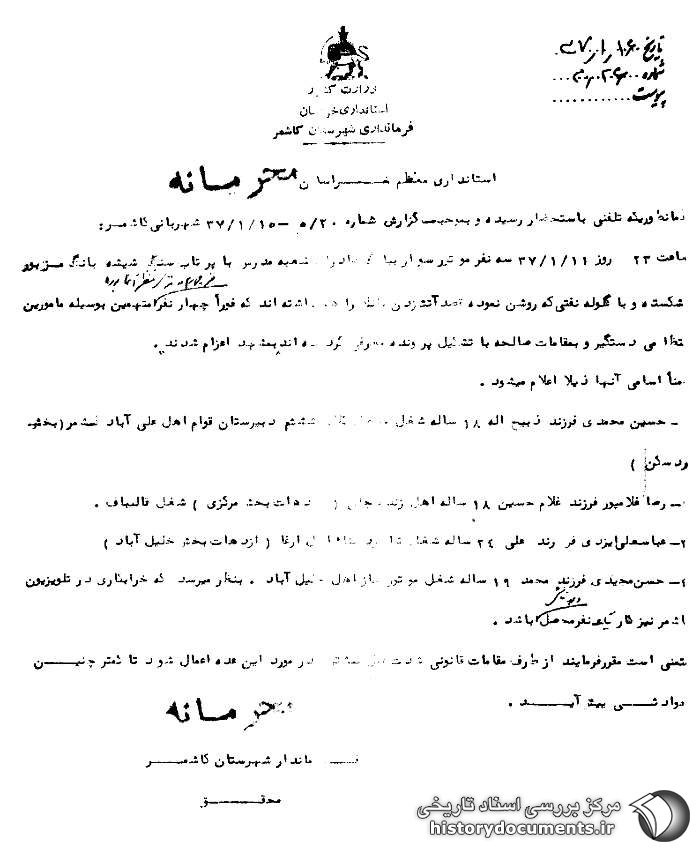 تاریخ
شماره
پیوست
وزارت کشور
استانداری خراسان
فرمانداری شهرستان کاشمر
استانداری معظم خراسان
محرمانه
همانطوریکه تلفنی باستحضار رسیده و بموجب گزارش شماره ۵/۲۰ – ۳۷/۱/۱۵ شهربانی کاشمر:
ساعت ۲۳ روز ۳۷/۱/۱۱ سه نفر موتور سوار شعبه مدرس با پرتاب سنگ شیشه بانک مزبور
شکسته و با گلوله نفتی که روشن نموده قصد آتش زدن بانک را داشته اند که فوراً چهار نفر متهمین بوسیله مامورین
انتظامی دستگیر و بمقامات صالحه با تشکیل پرونده معرفی گردیده اند بمشهد اعزام شدند.
ضمناً اسامی آنها ذیلا اعلام میشود.
– حسین محمدی فرزند ذبیح اله ۱۸ ساله شغل ششم دبیرستان قوام اهل علی آباد کشمر (بخش
بردسکن)
– رضا غلامپور فرزند غلام حسین ۱۸ ساله اهل (از دهات بخش مرکزی) شغل قالیباف.
۳– عباسعلی ایزدی فرزند علی ۲۴ ساله شغل اهل ارغا (از دهات بخش خلیل آباد)
۴– حسن مجیدی فرزند محمد ۱۹ ساله شغل موتور ساز اهل خلیل آباد. بنظر میرسد که خرابکاری در تلویزیون
کاشمر نیز کار یک نفر محصل باشد.
متمنی است مقرر فرمایند از طرف مقامات قانونی شدت عمل بیشتری در مورد این عده اعمال شود تا کمتر چنین
حوادثی پیش آید.
محرمانه
فرماندار شهرستان کاشمر
محقق
مرکز بررسی اسناد تاریخی
historydocuments.ir